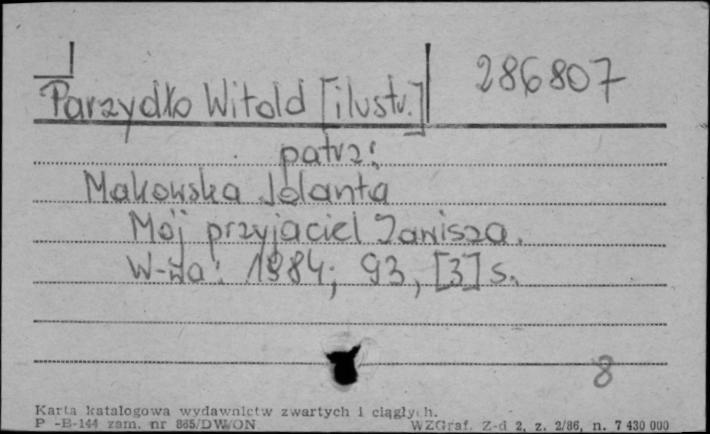 286807
Parzydło Witold [ilustr.]
patrz:
Makowska Jolanta
Mój przyjaciel Zawisza.
W-wa: 1984; 93, [3] s.
8
Karta katalogowa wydawnictw zwartych i ciągłych.
P -B-144 zam. nr 865/DW/ON WZGraf. Z-d 2, z. 2/86, n. 7 430 000